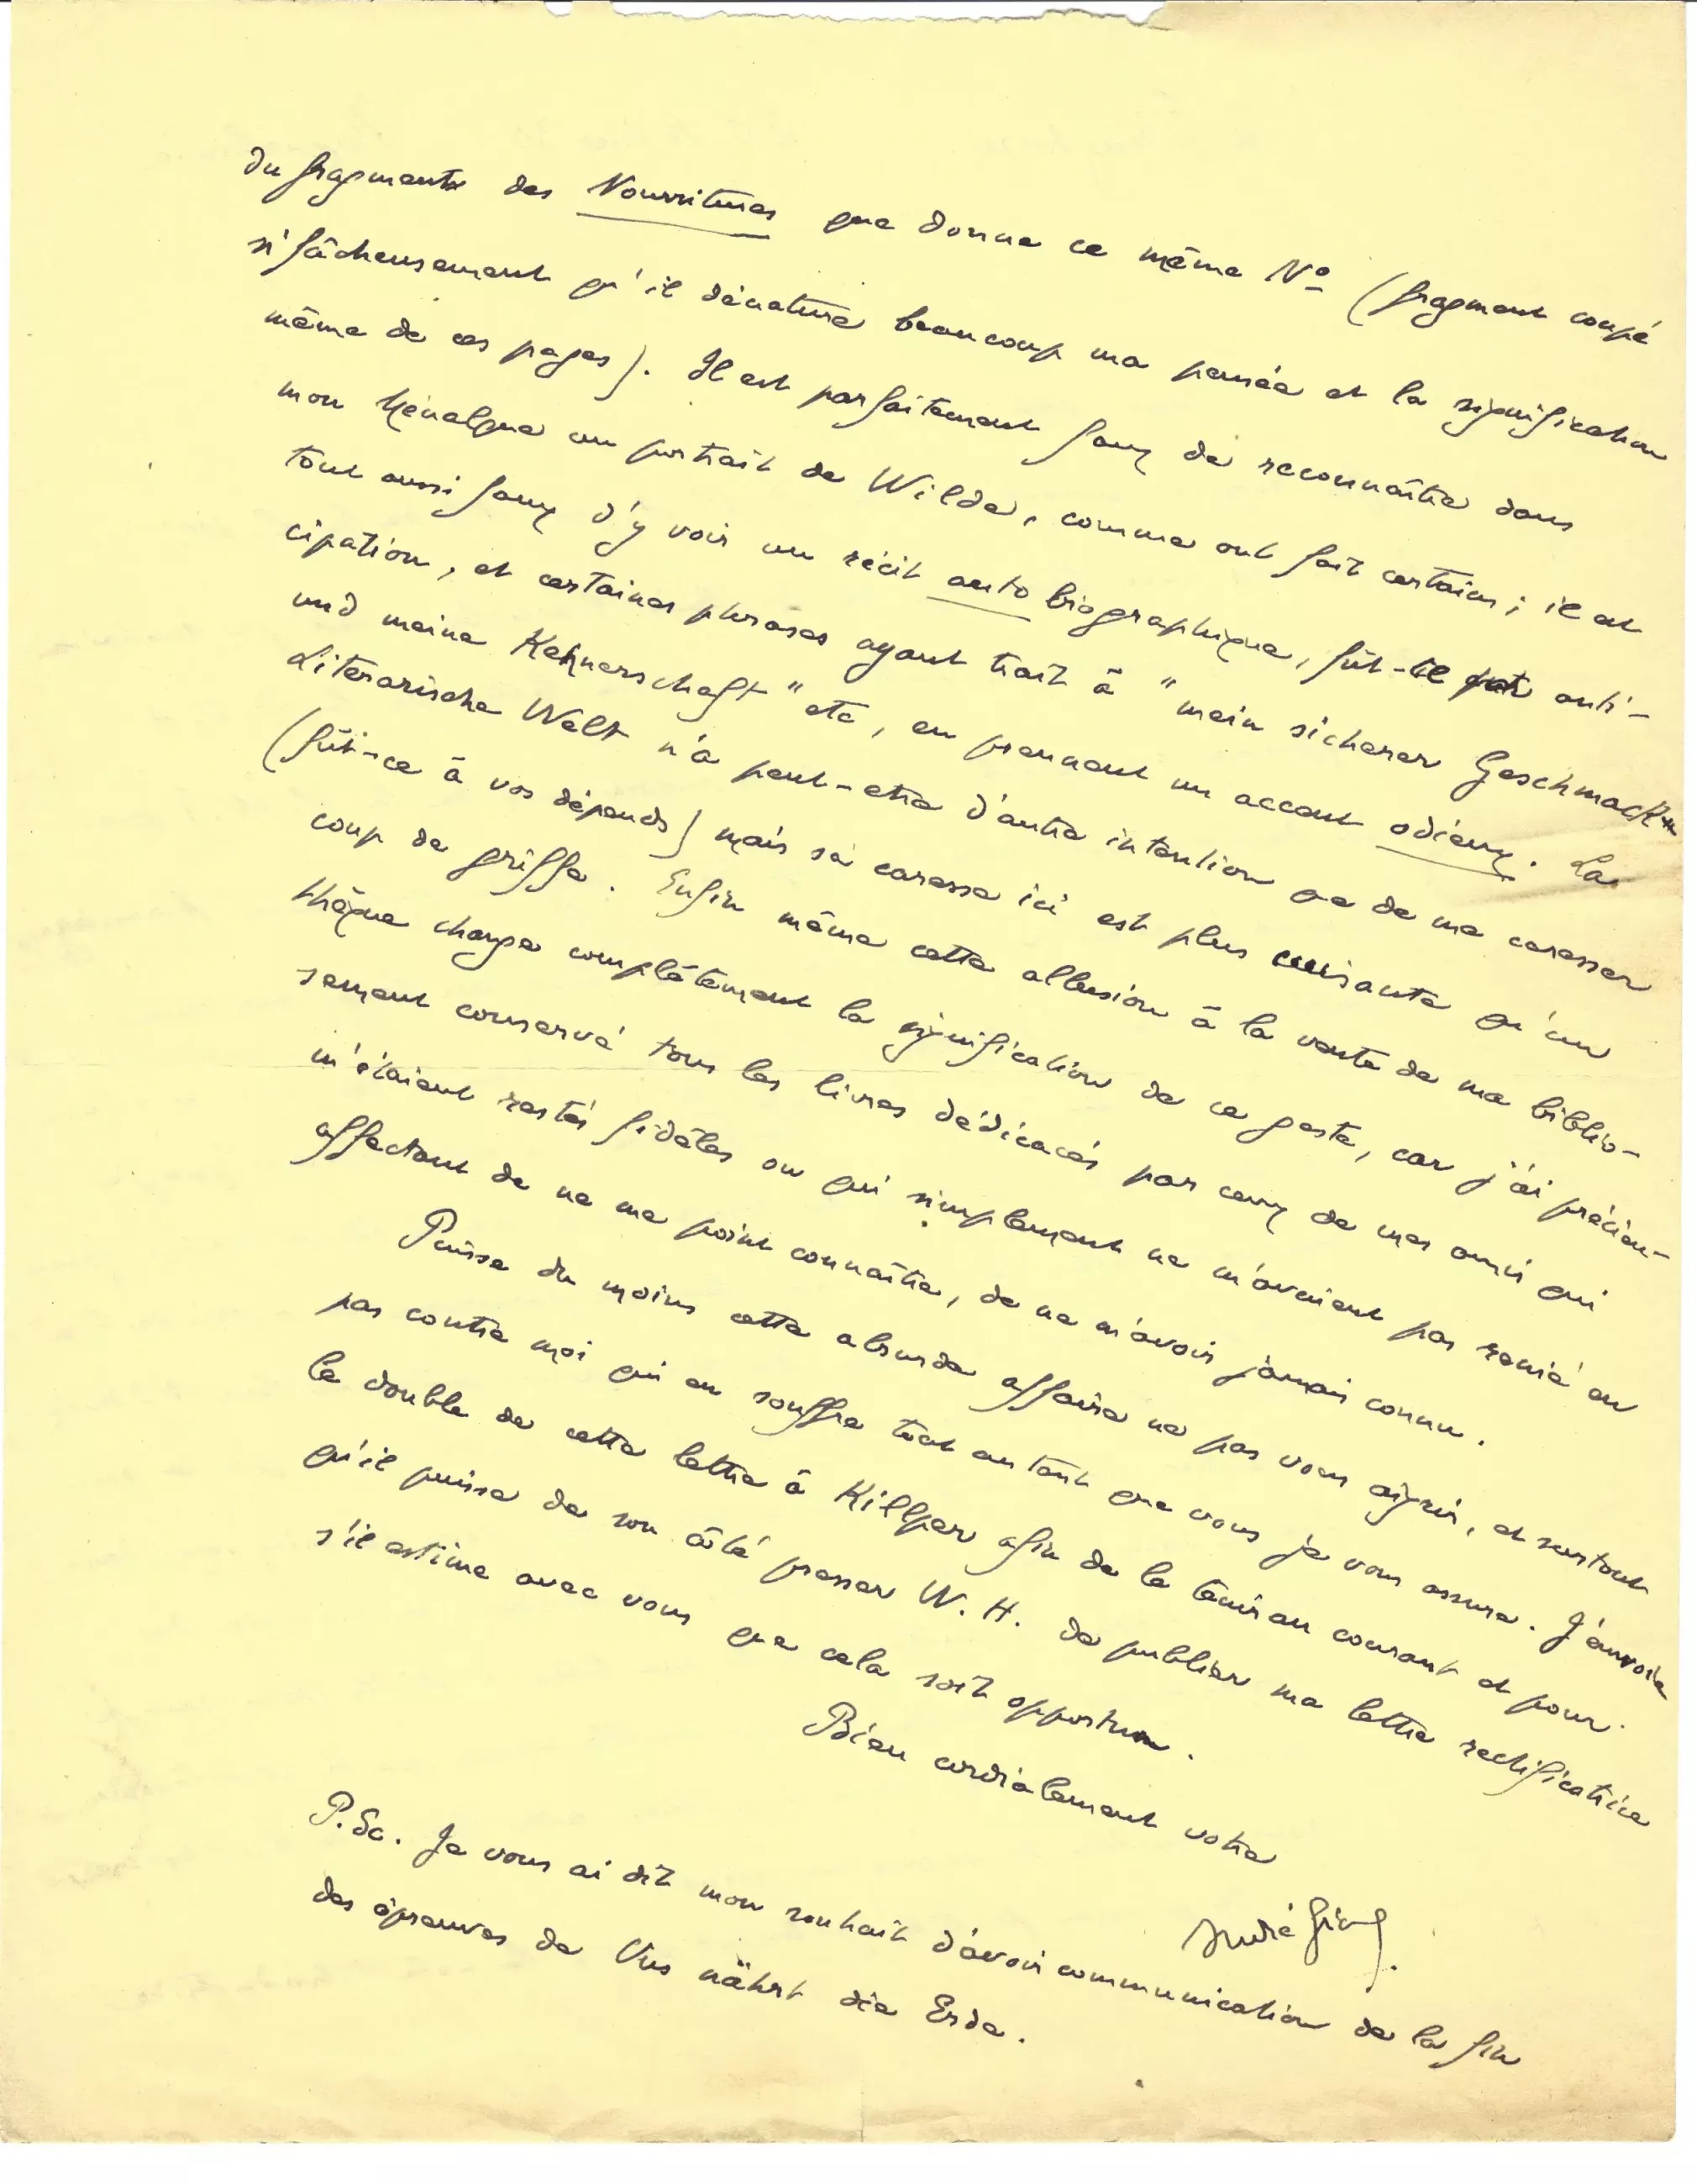 du fragment des Nourritures que donne ce même N° (fragment coupé
si fâcheusement qu'il dénature beaucoup ma pensée et la signification
même de ces pages). Il est parfaitement faux de reconnaître dans
mon Ménalque un portrait de Wilde, comme ont fait certains ; il est
tout aussi faux d'y voir un récit autobiographique, fût-il par anti-
cipation, et certaines phrases ayant trait à "mein sicherer Geschmack
und meine Kennerschaft" etc, en prennent un accent odieux. La
Literarische Welt n'a peut-etre d'autre intention que de me caresser
(fût-ce à vos dépends) mais sa caresse ici est plus cuisante qu'un
coup de griffe. Enfin même cette allusion à la vente de ma biblio-
thèque change complètement la signification de ce geste, car j'ai précieu-
sement conservé tous les livres dédicacés par ceux de mes amis qui
m'étaient restés fidèles ou qui simplement ne m'avaient pas renié en
affectant de ne me point connaître, de ne m'avoir jamais connu.
Puisse du moins cette absurde affaire ne pas vous aigrir, et surtout
pas contre moi qui en souffre tout autant que vous je vous assure. J'envoie
le double de cette lettre à Kilpper afin de le tenir au courant et pour
qu'il puisse de son côté presser W. H. de publier ma lettre rectificatrice
s'il estime avec vous que cela soit opportun.
Bien cordialement votre
André Gide.
P.Sc. Je vous ai dit mon souhait d'avoir communication de la fin
des épreuves de Uns nährt die Erde.